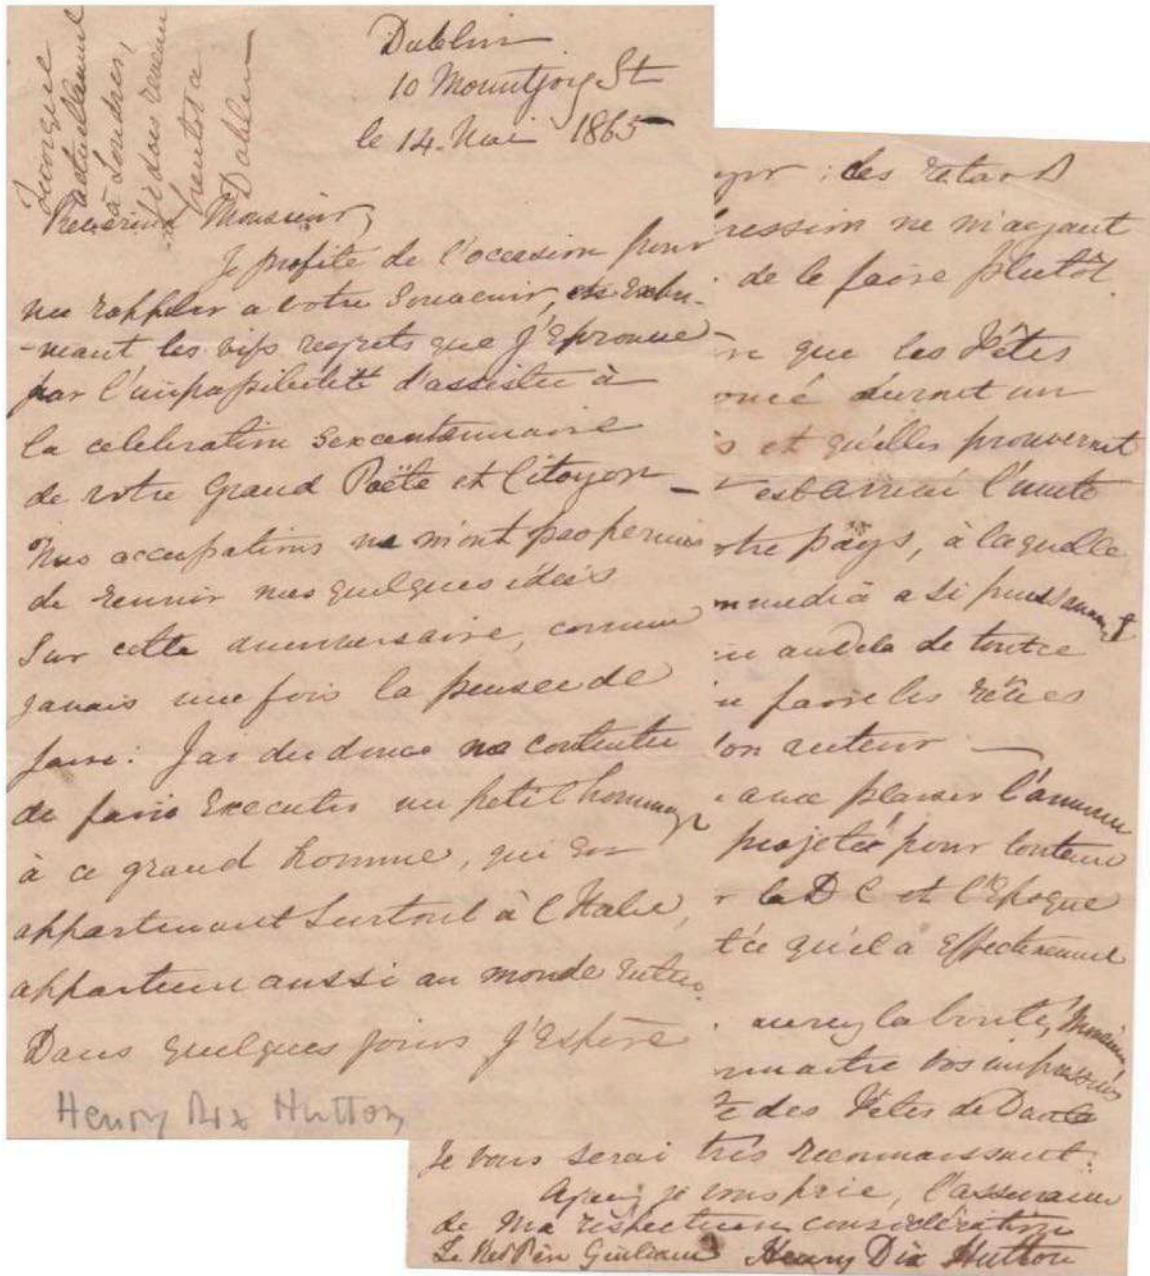 Quoique
actuellement
à Londres,
je dois revenir
bientot a
Dublin
Dublin
10 Mountjoy St
le 14. Mai 1865
Reverend Monsieur,
Je profite de l'occasion pour
me rappeler a votre Souvenir, en exbri-
-mant les vifs regrets que j'Eprouve
par l'impossibilité d'assister à
la celebration Sexcentennaire
de votre Grand Poëte et Citoyen —
Mes occupations ne m'ont pas permis
de reunir mes quelques idées
Sur cette anniversaire, comme
j'avais une fois la pensee de
faire: J'ai du donc me contenter
de faire Executer un petit hommage
à ce grand homme, qui en
appartenant Surtout à l'Italie,
appartient aussi au monde entier.
Dans quelques jours j'Espère
Henry Dix Hutton
des retards
ression ne m'ayant
de le faire plutôt.
que les Fêtes
oncé seront un
s et qu'elles prouveront
est arrivé l'unité
otre pays, à laquelle
mmedia a si puissamment
au dela de toutce
faire les rêves
son auteur —
avec plaisir l'annonce
projetée pour
la D C et l'Epoque
t'ée qu'il a Effectivement
aurez la bonté, Monsieur
nnaitre vos impressions
des Fêtes de Dante
Je vous serai très reconnaissant.
Agreez je vous prie, l'assurance
de Ma respectueuse consideration
Le Rev Père Giuliani Henry Dix Hutton